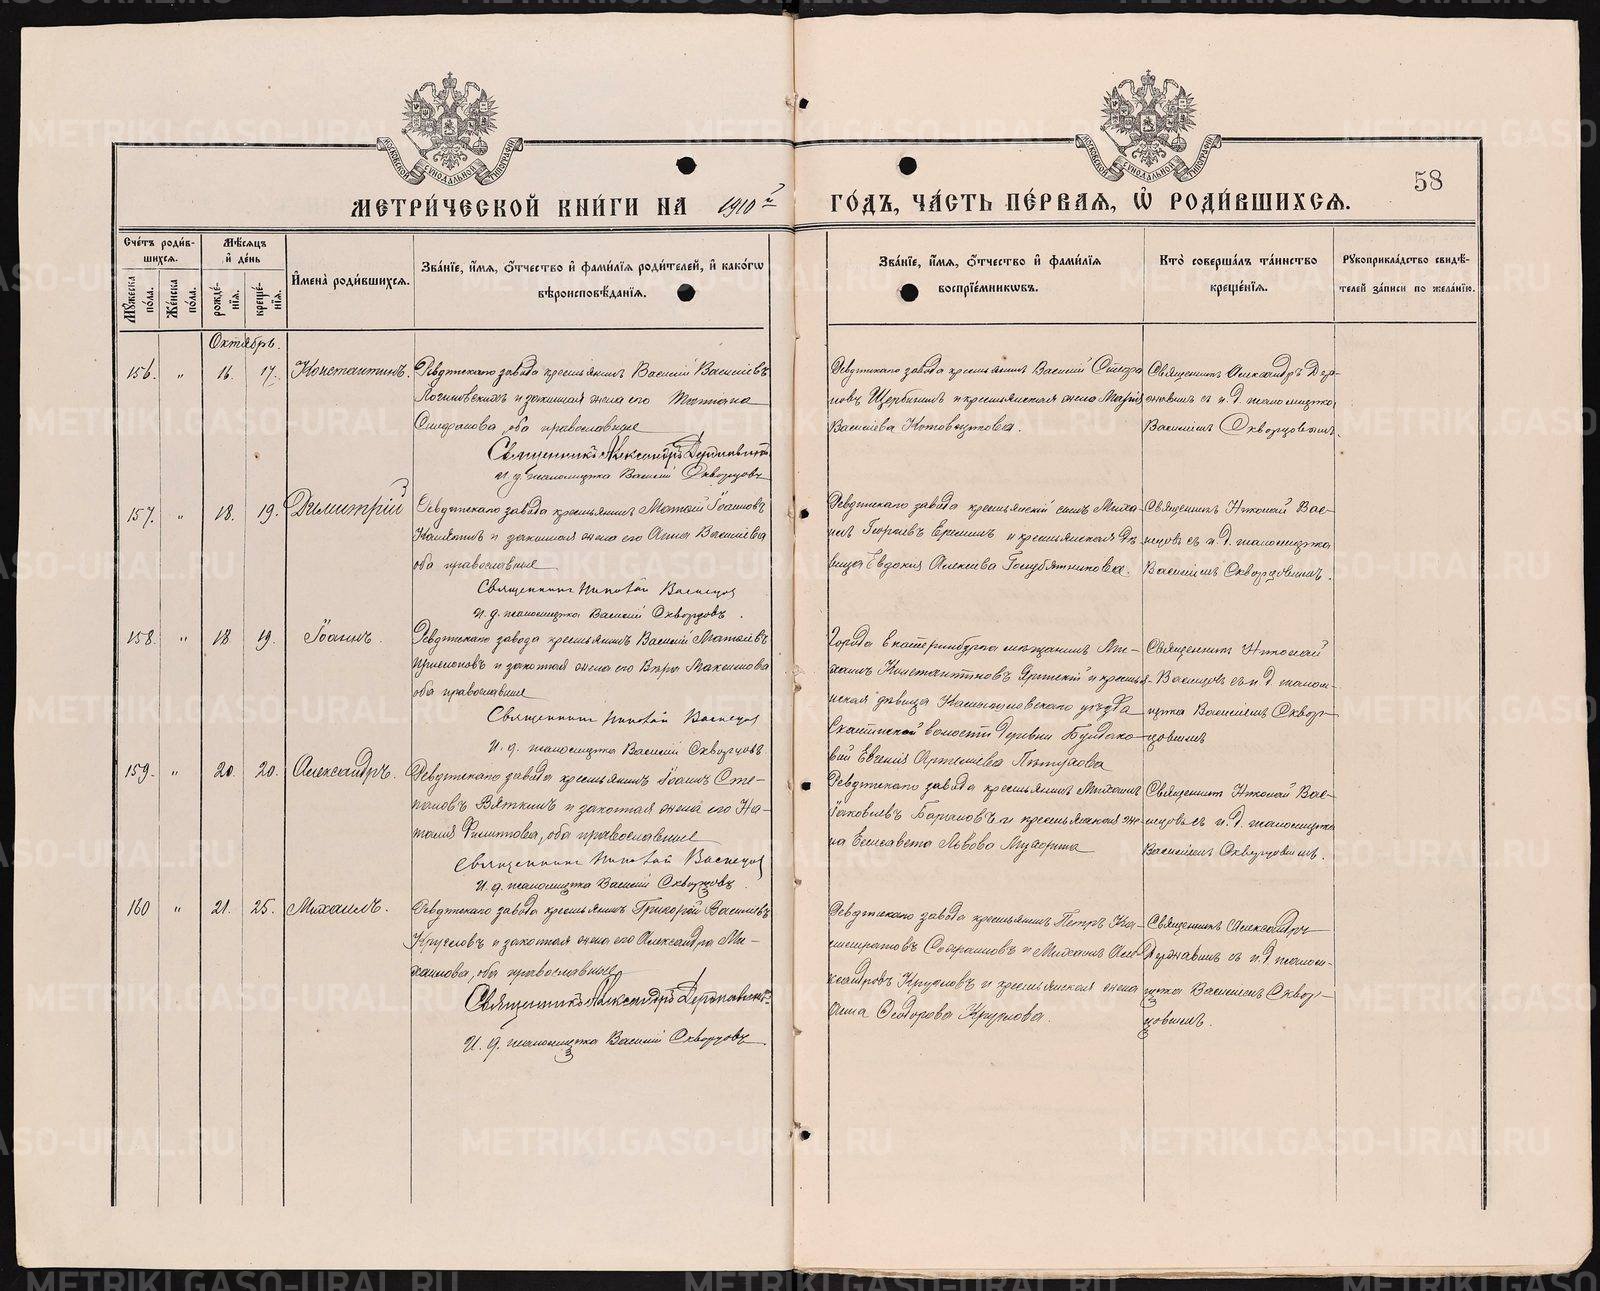 МЕТРИ́ЧЕСКОЙ КНИ́ГИ НА 1910 г
ГО́ДЪ, ЧА́СТЬ ПЕ́РВАЯ, Ѡ РОДИ́ВШИХСЯ.
58
Сче́тъ роди́в-
шихся.
Мѣ́сяцъ
и҆ де́нь
Му́жеска по́ла.
Же́нска по́ла.
рожде́-
нїя.
креще́-
нїя.
И҆мена̀ роди́вшихся.
Зва́нїе, и҆́мя, ѻ҆́тчество и҆ фами́лїя роди́телей, и҆ како́гѡ
вѣроисповѣ́данїя.
Зва́нїе, и҆́мя, ѻ҆́тчество и҆ фами́лїя
воспрїе́мникѡвъ.
Кто̀ соверша́лъ та́инство
креще́нїя.
Рукоприкла́дство свидѣ́-
телей за́писи по жела́нїю.
Октябрь.
156. „ 16. 17. Константинъ.
Ревдтскаго завода крестьянинъ Василій Васильевъ
Логиновскихъ и законная жена его Татіана
оба православные
Священникъ Александръ Державинъ
И. д. псаломщика Василій Скворцовъ
Ревдтскаго завода крестьянинъ Василій
Щербининъ и крестьянская жена Марія
Васильева
Священникъ Александръ Дер-
жавинъ съ и. д. псаломщика
Василіемъ Скворцовымъ.
157. „ 18. 19. Димитрій
Ревдтскаго завода крестьянинъ Матѳій Іоанновъ
и законная жена его Анна Васильева
оба православные
Священникъ Николай Васнецов
И. д. псаломщика Василій Скворцовъ.
Ревдтскаго завода крестьянскій сынъ Миха-
илъ Георгіевъ и крестьянская дѣ-
вица Евдокія Алексіева Голубятникова.
Священникъ Николай Вас-
нецовъ съ и. д. псаломщика
Василіемъ Скворцовымъ.
158. „ 18 19. Іоаннъ.
Ревдтскаго завода крестьянинъ Василій Матѳіевъ
и законная жена его Вѣра Максимова
оба православные
Священникъ Николай Васнецов
И. д. псаломщика Василій Скворцовъ
Города Екатеринбурга мѣщанинъ Ми-
хаилъ Константиновъ и кресть-
янская дѣвица Красноуфимскаго уѣзда
волости деревни
Евгенія Артеміева
Священникъ Николай
Васнецовъ съ и. д. псалом-
щика Василіемъ Сквор-
цовымъ
159. „ 20. 20. Александръ.
Ревдтскаго завода крестьянинъ Іоаннъ Сте-
пановъ Вяткинъ и законная жена его На-
талія Филиппова, оба православные
Священникъ Николай Васнецов
И. д. псаломщика Василій Скворцовъ.
Ревдтскаго завода крестьянинъ Михаилъ
Іаковлевъ Барановъ и крестьянская же-
на Елисавета Львова
Священникъ Николай Вас-
нецовъ съ и. д. псаломщика
Василіемъ Скворцовымъ.
160 „ 21. 25. Михаилъ.
Ревдтскаго завода крестьянинъ Григорій Васильевъ
Кругловъ и законная жена его Александра Ми-
хаилова, оба православные
Священникъ Александръ Державинъ
И. д. псаломщика Василій Скворцовъ.
Ревдтскаго завода крестьянинъ Петръ Ка-
листратовъ и Михаилъ Але-
ксандровъ Кругловъ и крестьянская жена
Анна Ѳеодорова Круглова.
Священникъ Александръ
Державинъ съ и. д. псалом-
щика Василіемъ Сквор-
цовымъ.
METRIKI.GASO-URAL.RU